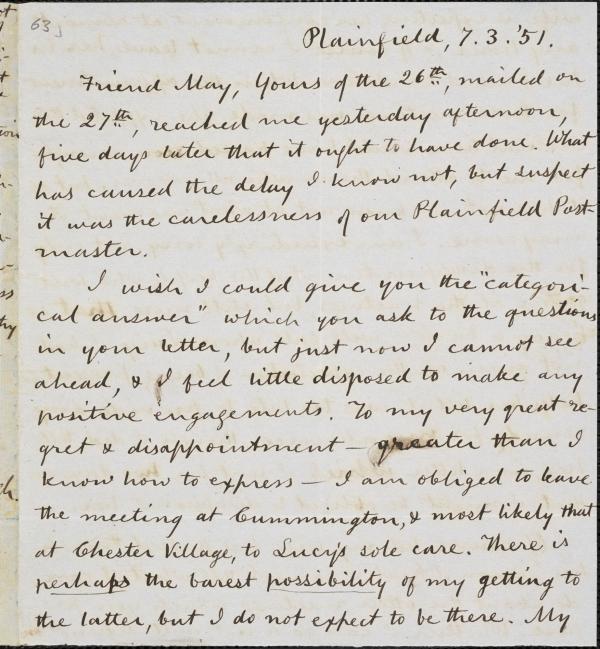 63
Plainfield, 7.3.'51.
Friend May, Yours of the 26th, mailed on
the 27th, reached me yesterday afternoon,
five days later that it ought to have done. What
has caused the delay I know not, but suspect
it was the carelessness of our Plainfield Post-
master.
I wish I could give you the "categori-
cal answer" which you ask to the questions
in your letter, but just now I cannot see
ahead, & I feel little disposed to make any
positive engagements. To my very great re-
gret & disappointment — greater than I
know how to express — I am obliged to leave
the meeting at Cummington, & most likely that
at Chester Village, to Lucy's sole care. There is
perhaps the barest possibility of my getting to
the latter, but I do not expect to be there. My